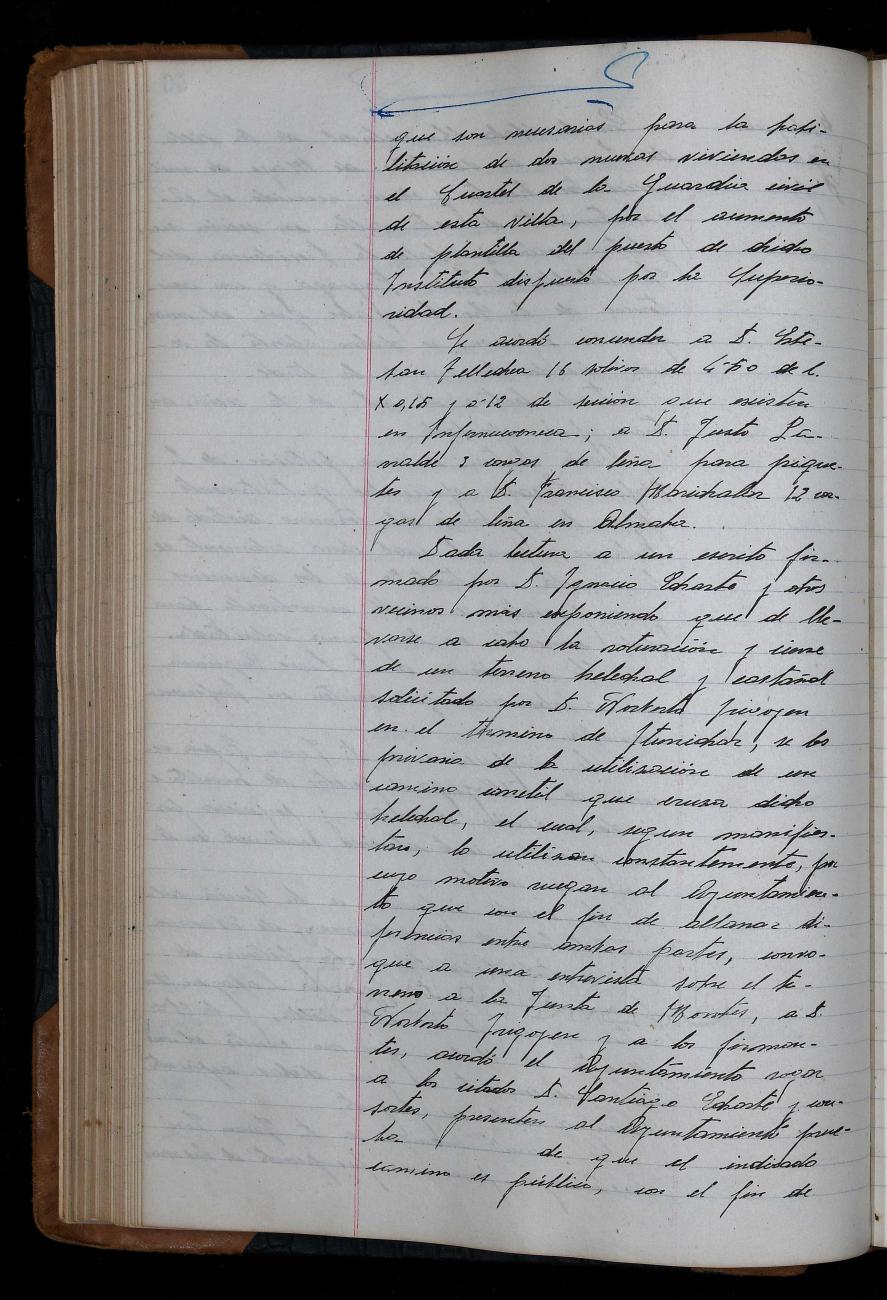 que son necesarias para la habi-
litación de dos nuevas viviendas en
el Cuartel de la Guardia civil
de esta villa, por el aumento
de plantilla del puesto de dicho
Instituto dispuesto por la Superio-
ridad.
Se acordó conceder a D. Este-
ban Tellechea 16 solivos de 4-50 de l.
x 0,15 y 0-12 de sección que existen
en; a D. Justo La-
rralde 3 cargas de leña para pique-
tes y a D. Francisco Marichalar 12 car-
gas de leña en
Dada lectura a un escrito fir-
mado por D. Ignacio Echarte y otros
vecinos más exponiendo que de lle-
varse a cabo la roturación y cierre
de un terreno helechal y castañal
solicitado por D. Norberto Irigoyen
en el término de, se les
privaria de la utilización de un
camino carretil que cruza dicho
helechal, el cual, segun manifies-
tan, lo utilizan constantemente, por
cuyo motivo ruegan al Ayuntamien-
to que con el fin de allanar di-
ferencias entre ambas partes, convo-
que a una entrevista sobre el te-
rreno a la Junta de Montes, a D.
Norberto Irigoyen y a los firman-
tes, acordó el Ayuntamiento rogar
a los citados D. Santiago Echarte y con-
sortes, presenten al Ayuntamiento prue-
ba de que el indicado
camino es público, con el fin de